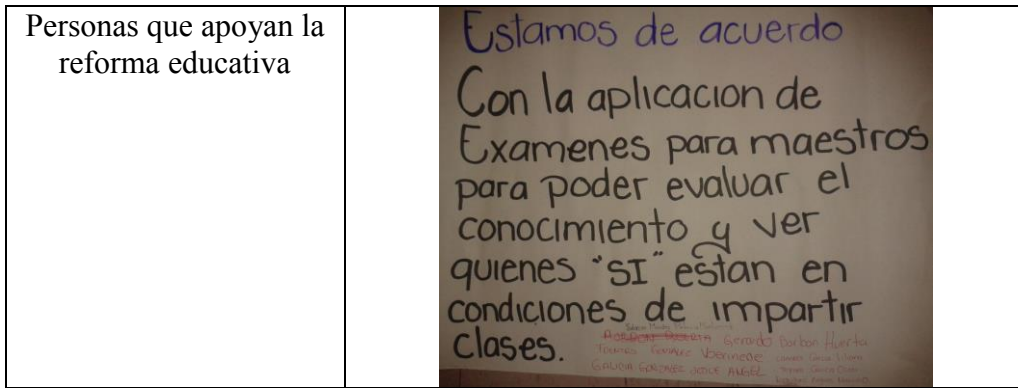 Personas que apoyan la
reforma educativa
Estamos de acuerdo
Con la aplicacion de
Examenes para maestros
para poder evaluar el
conocimiento y ver
quienes "SI" estan en
condiciones de impartir
Clases.
Gerardo Barbon Huerta